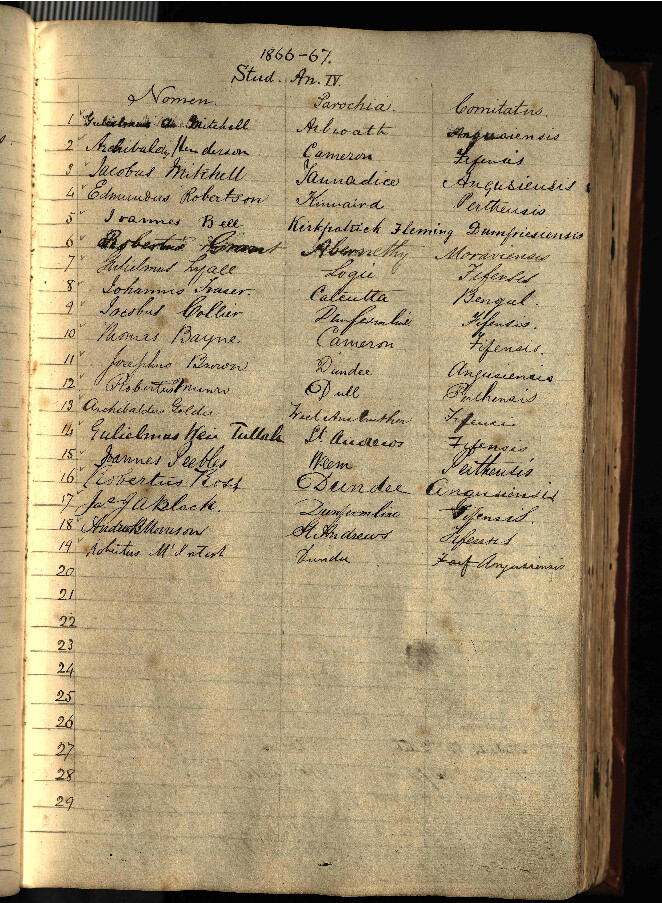 1866-67.
Stud. An. IV.
Nomen. Parochia. Comitatus.
1 Gulielmus Mitchell Arbroath Angusiensis
2 Archibald Henderson Cameron Fifensis
3 Jacobus Mitchell Tannadice Angusiensis
4 Edmundus Robertson Kinnaird Perthensis
5 Ioannes Bell Kirkpatrick Fleming Dumfriesiensis
6 Robertus Grant Abernethy Moraviensis
7 Gulielmus Lyall Logie Fifensis
8 Iohannes Fraser. Calcutta Bengal.
9 Jacobus Collier Dunfermline Fifensis.
10 Thomas Bayne Cameron Fifensis.
11 Josephus Brown Dundee Angusiensis
12 Robertus Munro Dull Perthensis
13 Archibaldus Goldie West Anstruther Fifensis
14 Gulielmus Weir Tulloch St Andrews Fifensis
15 Joannes Peebles Weem Perthensis
16 Robertus Ross Dundee Angusiensis
17 Jas J A Black Dunfermline Fifensis
18 Morrison St Andrews Fifensis
19 Robertus McIntosh Dundee Angusiensis
20
21
22
23
24
25
26
27
28
29